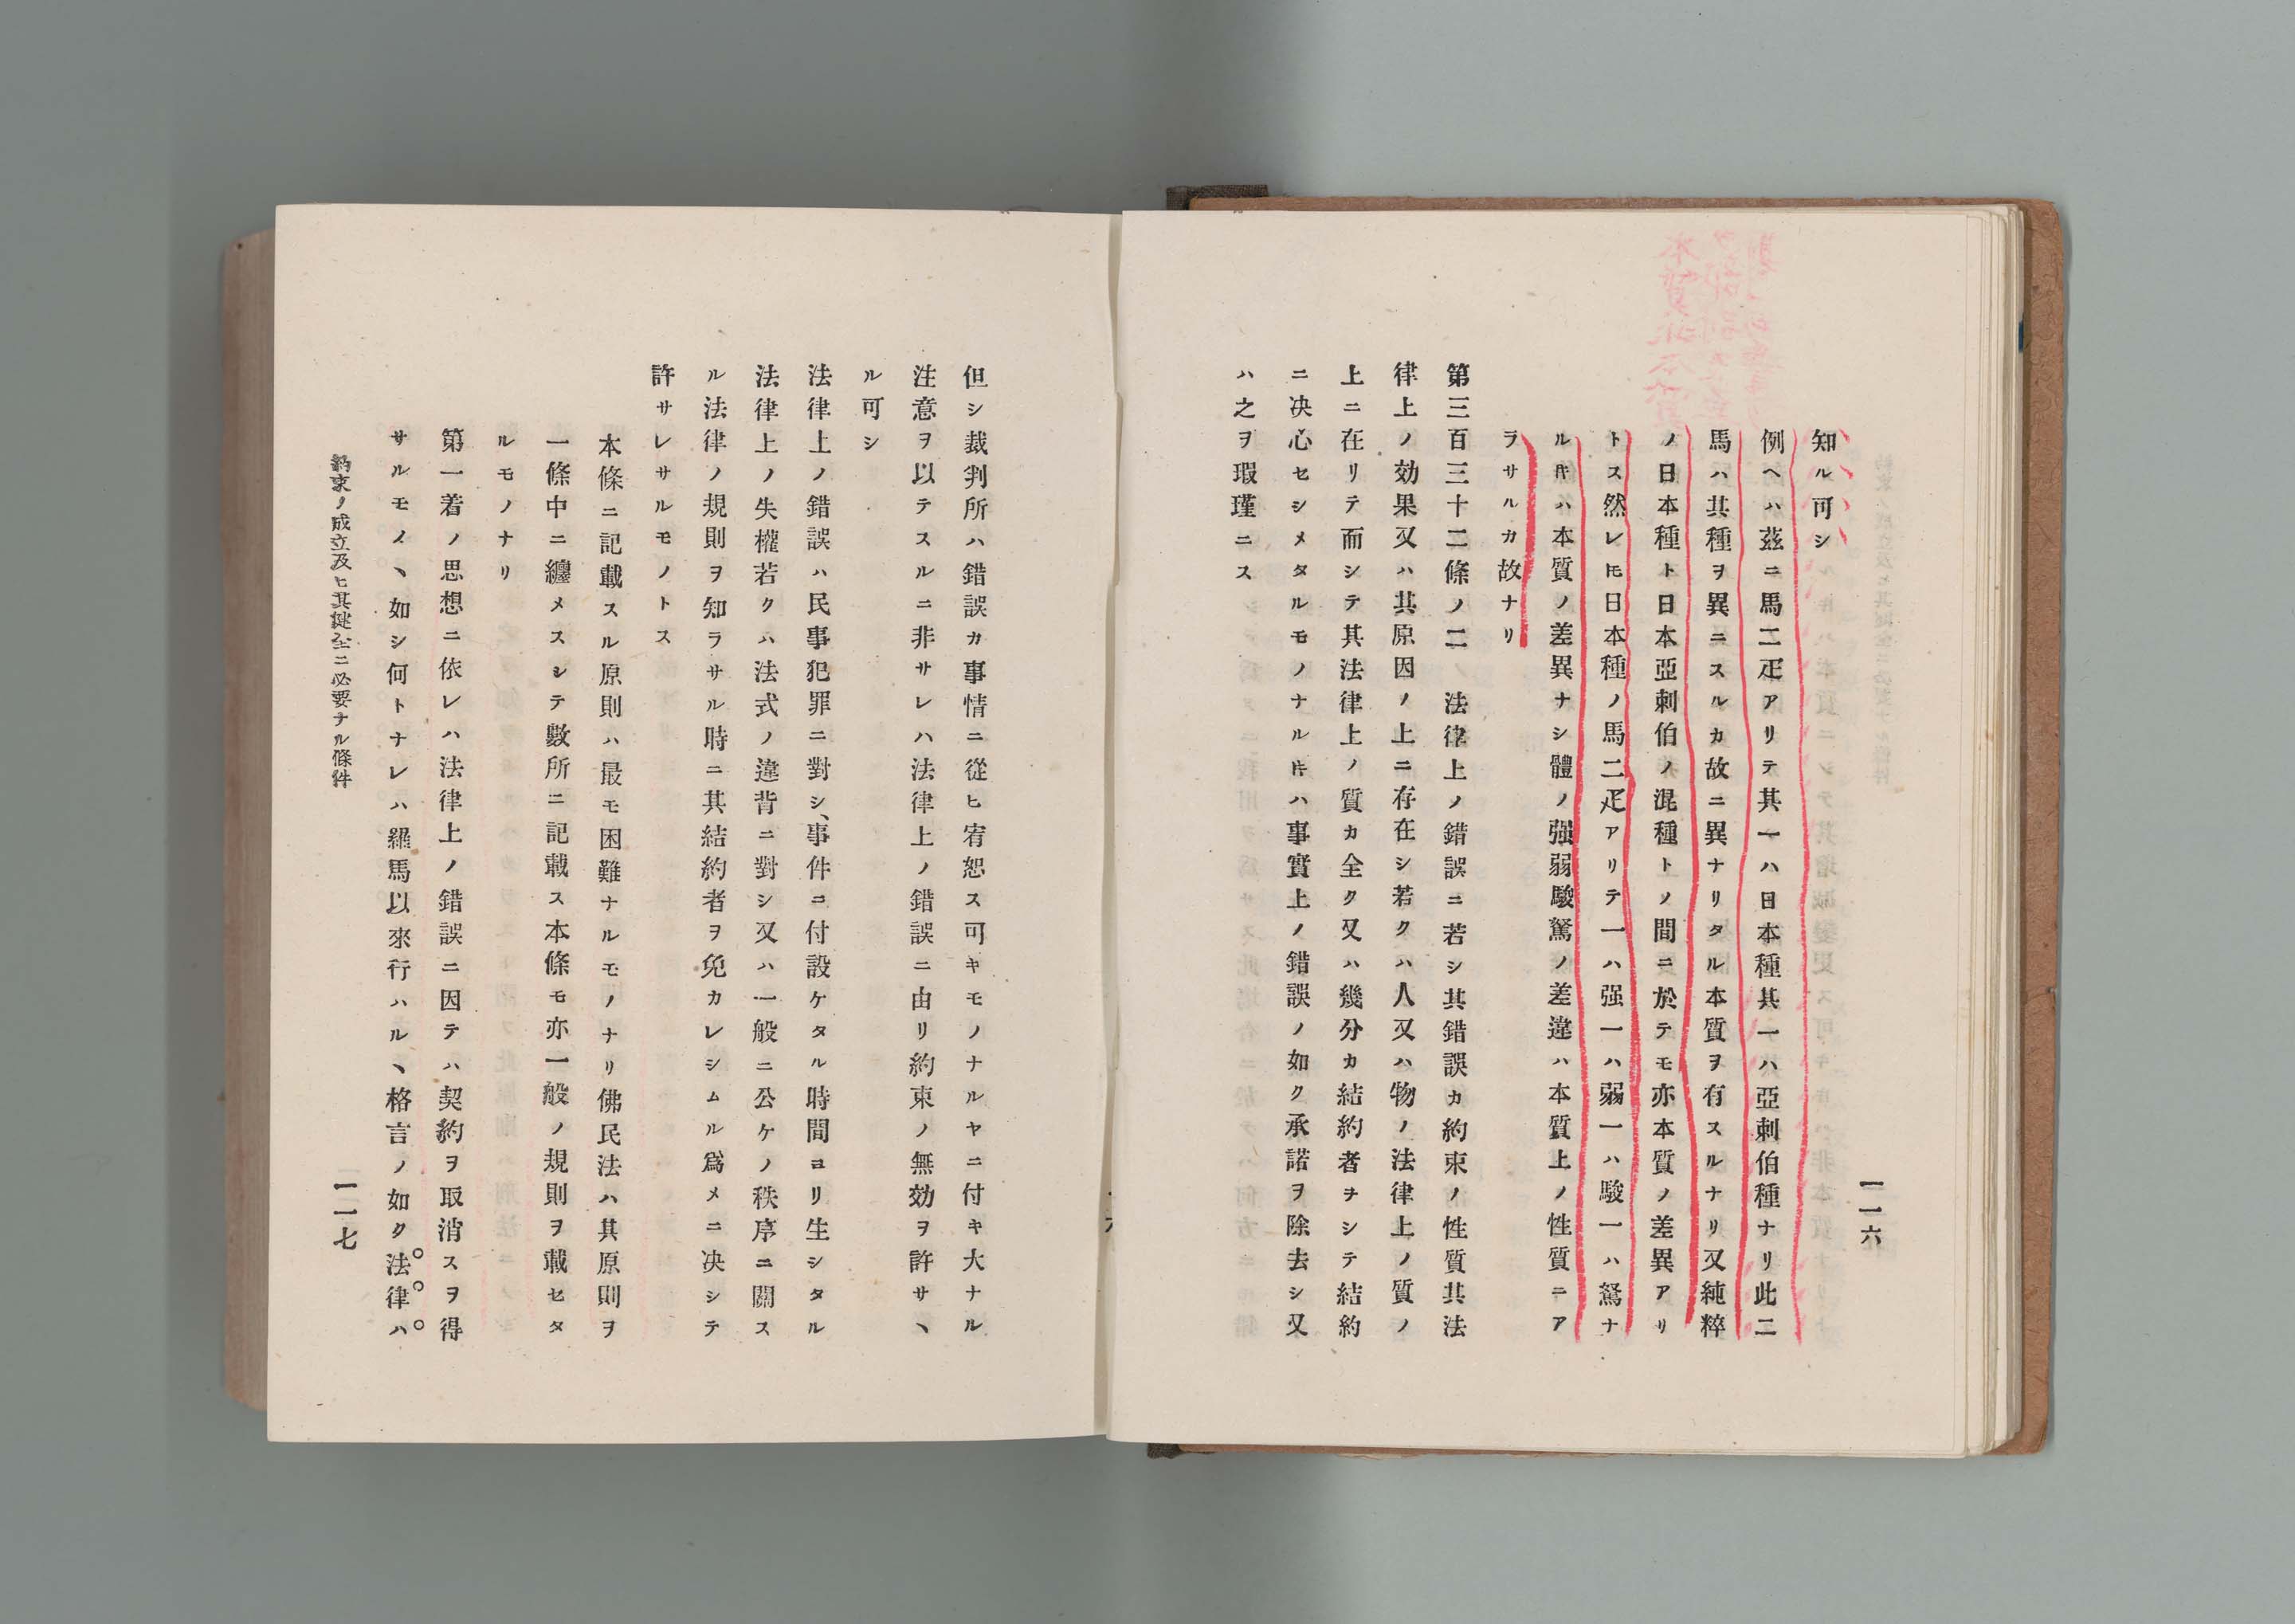 一一六
知ル可シ
例ヘハ茲ニ馬二疋アリテ其一ハ日本種其一ハ亞刺伯種ナリ此二
馬ハ其種ヲ異ニスルカ故ニ異ナリタル本質ヲ有スルナリ又純粹
ノ日本種ト日本亞刺伯ノ混種トノ間ニ於テモ亦本質ノ差異アリ
トス然レ𪜈日本種ノ馬二疋アリテ一ハ强一ハ弱一ハ駿一ハ駑ナ
ルキハ本質ノ差異ナシ體ノ强弱駿駑ノ差違ハ本質上ノ性質ニア
ラサルカ故ナリ
第三百三十二條ノ二　法律上ノ錯誤ニ若シ其錯誤カ約束ノ性質其法
律上ノ効果又ハ其原因ノ上ニ存在シ若クハ人又ハ物ノ法律上ノ質ノ
上ニ在リテ而シテ其法律上ノ質カ全ク又ハ幾分カ結約者ヲシテ結約
ニ决心セシメタルモノナル𪜈ハ事實上ノ錯誤ノ如ク承諾ヲ除去シ又
ハ之ヲ瑕瑾ニス
但シ裁判所ハ錯誤カ事情ニ從ヒ宥恕ス可キモノナルヤニ付キ大ナル
注意ヲ以テスルニ非サレハ法律上ノ錯誤ニ由リ約束ノ無効ヲ許サヽ
ル可シ
法律上ノ錯誤ハ民事犯罪ニ對シ、事件ニ付設ケタル時間ヨリ生シタル
法律上ノ失權若クハ法式ノ違背ニ對シ又ハ一般ニ公ケノ秩序ニ關ス
ル法律ノ規則ヲ知ラサル時ニ其結約者ヲ免カレシムル爲メニ决シテ
許サレサルモノトス
本條ニ記載スル原則ハ最モ困難ナルモノナリ佛民法ハ其原則ヲ
一條中ニ纏メスシテ數所ニ記載ス本條モ亦一般ノ規則ヲ載セタ
ルモノナリ
第一着ノ思想ニ依レハ法律上ノ錯誤ニ因テハ契約ヲ取消スヲ得
サルモノヽ如シ何トナレハ羅馬以來行ハルヽ格言ノ如ク法律ハ
約束ノ成立及ヒ其健全ニ必要ナル條件
一一七